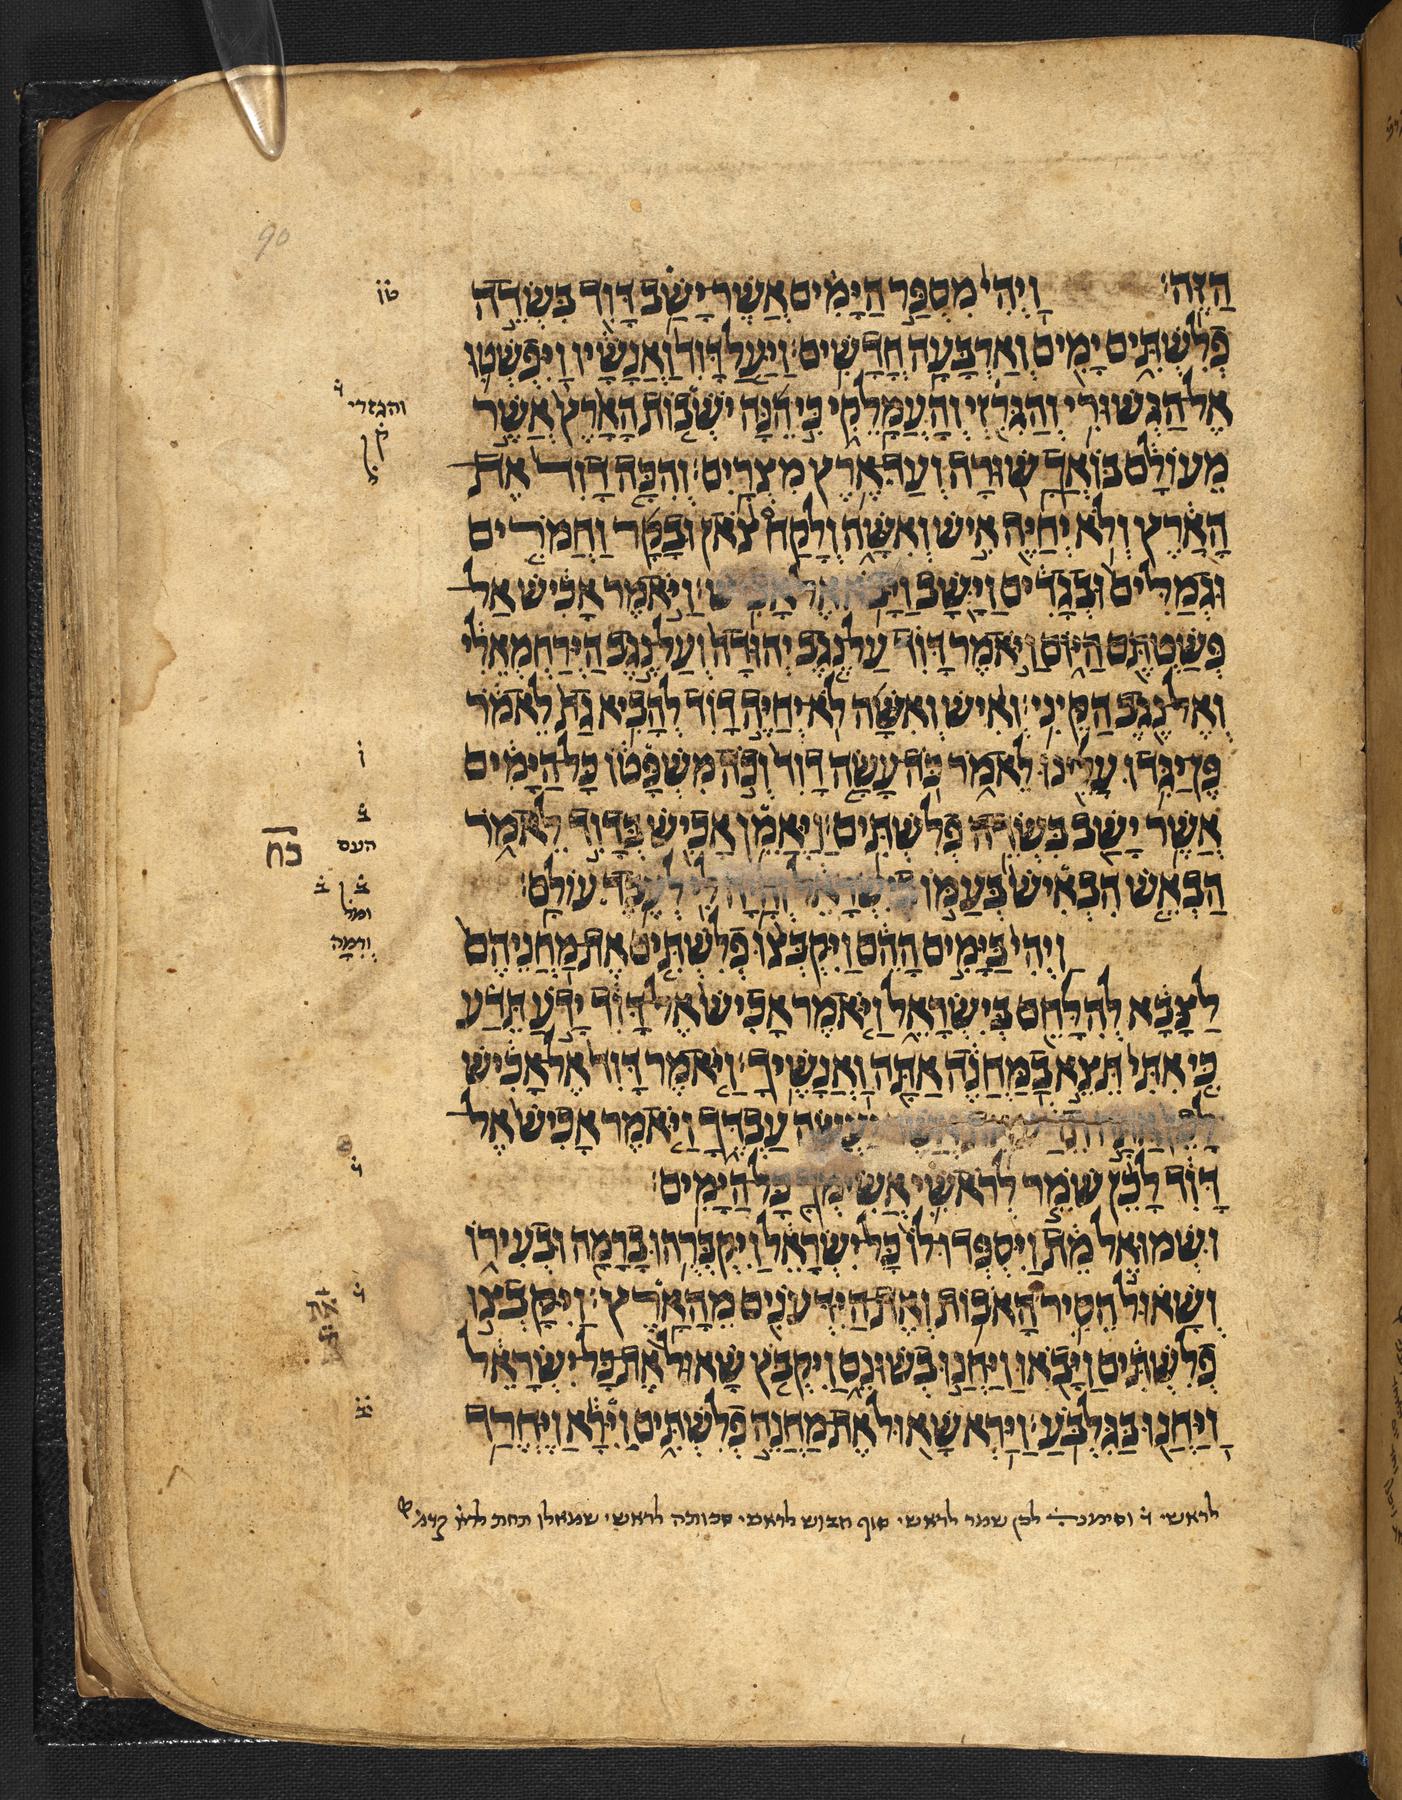 90
הַזֶּה׃ וַיְהִי מִסְפַּר הַיָּמִים אֲשֶׁר יָשַׁב דָּוִד בִּשְׂדֵה
טו
פְלִשְׁתִּים יָמִים וְאַרְבָּעָה חֳדָשִׁים׃ וַיַּעַל דָּוִד וַאֲנָשָׁיו וַיִּפְשְׁטוּ
אֶל הַגְּשׁוּרִי וְהַגִּרְזִי וְהָעֲמָלֵקִי כִּי הֵנָּה יֹשְׁבוֹת הָאָרֶץ אֲשֶׁר
והגזרי
ק
מֵעוֹלָם בּוֹאֲךָ שׁוּרָה וְעַד אֶרֶץ מִצְרָיִם׃ וְהִכָּה דָוִד אֶת
הָאָרֶץ וְלֹא יְחַיֶּה אִישׁ וְאִשָּׁה וְלָקַח צֹאן וּבָקָר וַחֲמֹרִים
וּגְמַלִּים וּבְגָדִים וַיָּשָׁב וַיָּבֹא אֶל אָכִישׁ׃ וַיֹּאמֶר אָכִישׁ אַל
פְּשַׁטְתֶּם הַיּוֹם וַיֹּאמֶר דָּוִד עַל נֶגֶב יְהוּדָה וְעַל נֶגֶב הַיְּרַחְמְאֵלִי
וְאֶל נֶגֶב הַקֵּינִי׃ וְאִישׁ וְאִשָּׁה לֹא יְחַיֶּה דָוִד לְהָבִיא גַת לֵאמֹר
פֶּן יַגִּדוּ עָלֵינוּ לֵאמֹר כֹּה עָשָׂה דָוִד וְכֹה מִשְׁפָּטוֹ כָּל הַיָּמִים
ו
אֲשֶׁר יָשַׁב בִּשְׂדֵה פְלִשְׁתִּים׃ וַיַּאֲמֵן אָכִישׁ בְּדָוִד לֵאמֹר
ב
העם
כח
הַבְאֵשׁ הִבְאִישׁ בְּעַמּוֹ בְיִשְׂרָאֵל וְהָיָה לִי לְעֶבֶד עוֹלָם׃
ב ב
וַיְהִי בַּיָּמִים הָהֵם וַיִּקְבְּצוּ פְלִשְׁתִּים אֶת מַחֲנֵיהֶם
וּרמה
לַצָּבָא לְהִלָּחֵם בְּיִשְׂרָאֵל וַיֹּאמֶר אָכִישׁ אֶל דָּוִד יָדֹעַ תֵּדַע
כִּי אִתִּי תֵּצֵא בַמַּחֲנֶה אַתָּה וַאֲנָשֶׁיךָ׃ וַיֹּאמֶר דָּוִד אֶל אָכִישׁ
לָכֵן אַתָּה תֵדַע אֵת אֲשֶׁר יַעֲשֶׂה עַבְדֶּךָ וַיֹּאמֶר אָכִישׁ אֶל
דָּוִד לָכֵן שֹׁמֵר לְרֹאשִׁי אֲשִׂימְךָ כָּל הַיָּמִים׃
וּשְׁמוּאֵל מֵת וַיִּסְפְּדוּ לוֹ כָּל יִשְׂרָאֵל וַיִּקְבְּרֻהוּ בָרָמָה וּבְעִירוֹ
וְשָׁאוּל הֵסִיר הָאֹבוֹת וְאֶת הַיִּדְּעֹנִים מֵהָאָרֶץ׃ וַיִּקָּבְצוּ
פְלִשְׁתִּים וַיָּבֹאוּ וַיַּחֲנוּ בְשׁוּנֵם וַיִּקְבֹּץ שָׁאוּל אֶת כָּל יִשְׂרָאֵל
וַיַּחֲנוּ בַּגִּלְבֹּעַ׃ וַיַּרְא שָׁאוּל אֶת מַחֲנֵה פְלִשְׁתִּים וַיִּרָא וַיֶּחֱרַד
לראשי ז וסימנה לכן שמר לראשי סוף חבוש לראשי לראשי שמאלו תחת לראשי